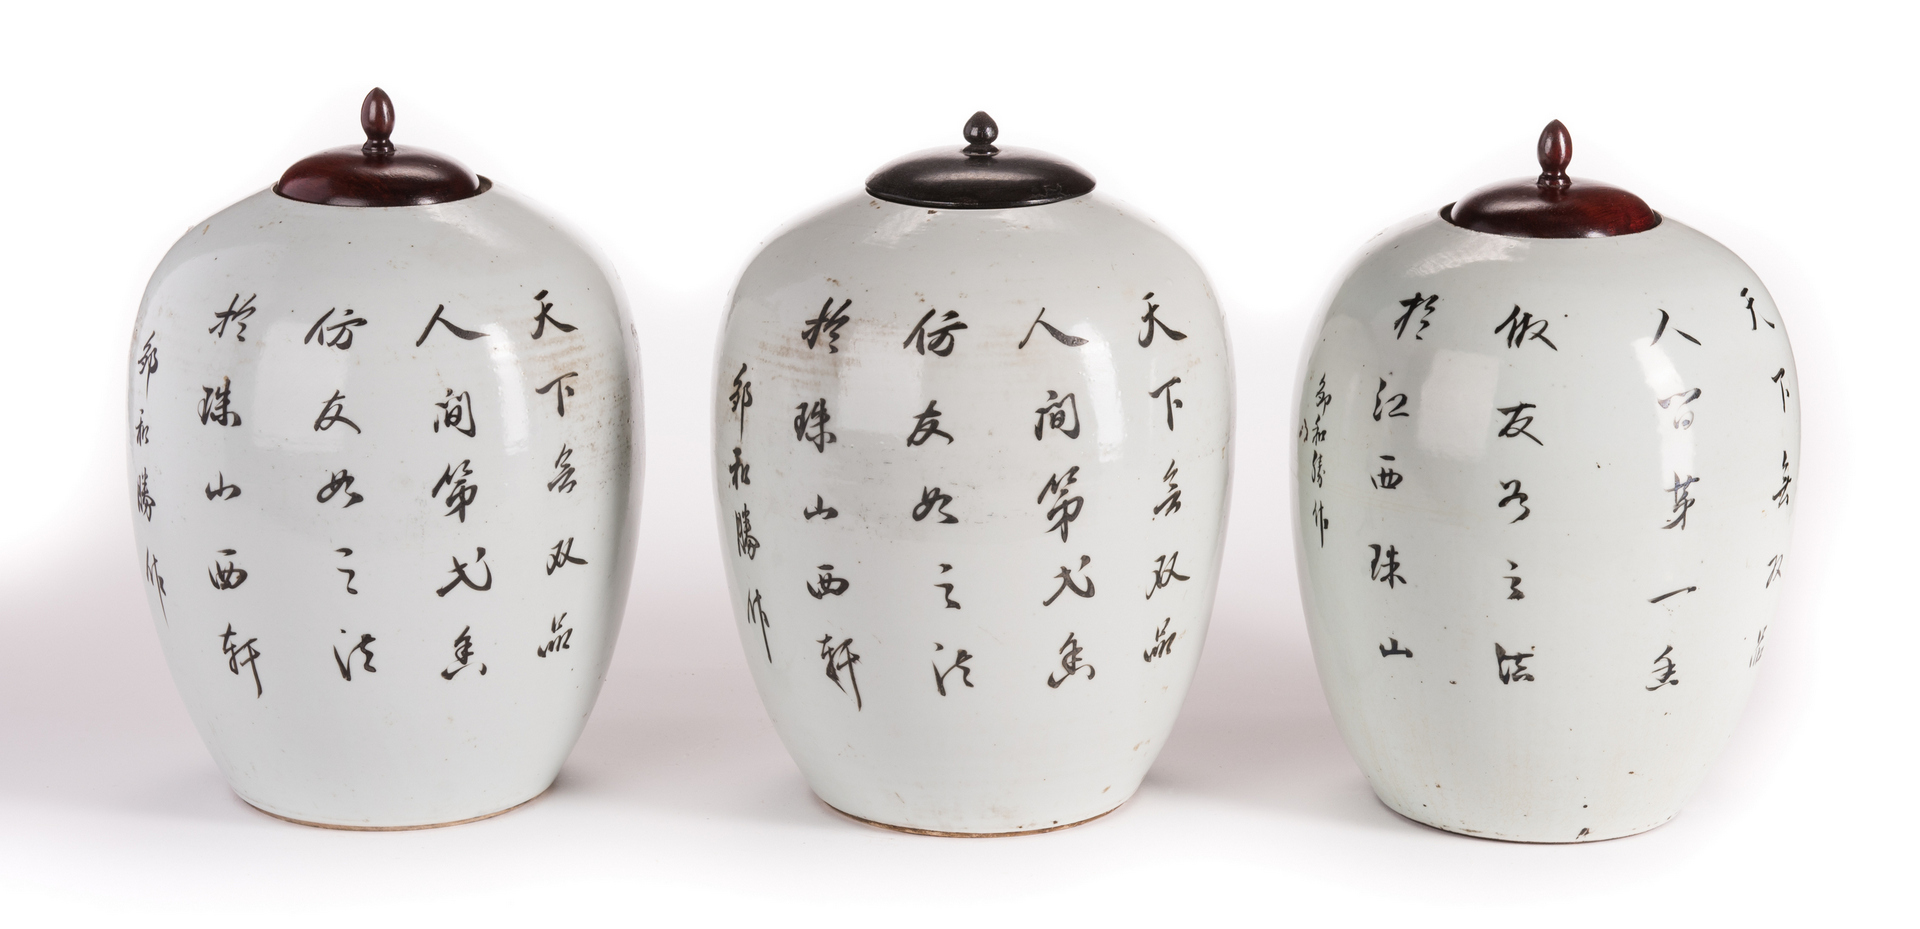 天下無双品
人間第弌香
仿友如之法
於珠山西軒
鄒和勝作
天下無双品
人間第弌香
仿友如之法
於珠山西軒
鄒和勝作
天下無双品
人間第一香
倣友如之法
於江西珠山
鄒和勝作